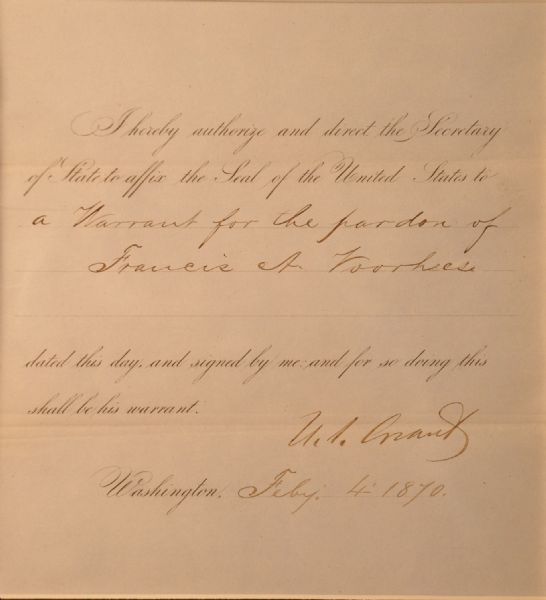 I hereby authorize and direct the Secretary
of State to affix the Seal of the United States to
a Warrant for the pardon of
Francis A. Voorhees
dated this day, and signed by me: and for so doing this
shall be his warrant.
U.S. Grant
Washington, Feby. 4 1870.